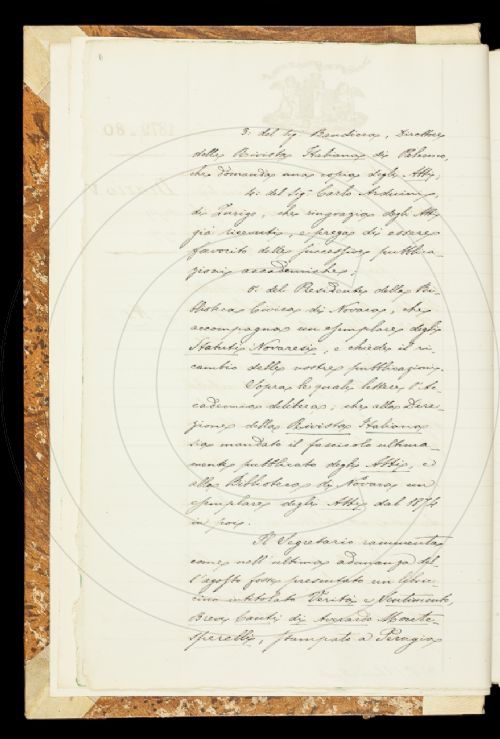 3. del Sig. Bandiera, Direttore
della Rivista Italiana di Palermo,
che domanda una copia degli Atti;
4. del Sig. Carlo Arduini,
di Zurigo, che ringrazia degli Atti
già ricevuti, e prega di essere
favorito delle successive pubblica-
zioni accademiche;
5. del Presidente della Bi-
blioteca Civica di Novara, che
accompagna un esemplare degli
Statuti Novaresi, e chiede il ri-
cambio delle nostre pubblicazioni.
Sopra le quali lettere l'Ac-
cademia delibera, che alla Dire-
zione della Rivista Italiana
sia mandato il fascicolo ultima-
mente pubblicato degli Atti, e
alla Biblioteca di Novara un
esemplare degli Atti dal 1874
in poi.
Il Segretario rammenta
come nell'ultima adunanza del-
l'agosto fosse presentato un libric-
cino intitolato Verità e Sentimento,
Brevi Canti di Averardo Monte-
sperelli, stampato a Perugia